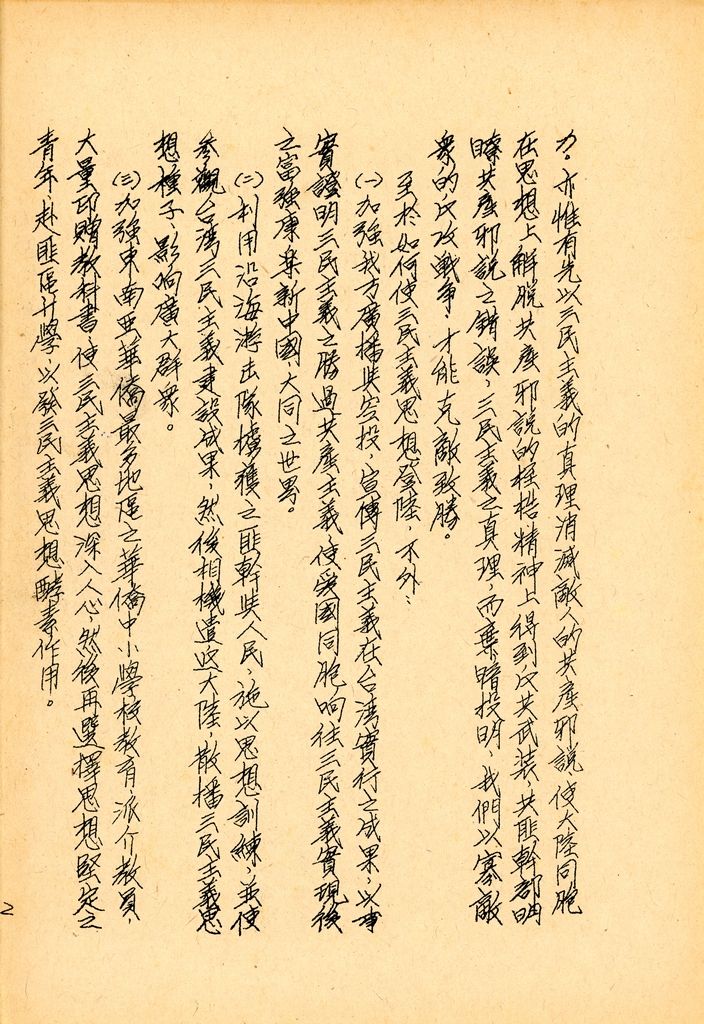 力。亦惟有先以三民主義的真理消滅敵人的共產邪說，使大陸同胞
在思想上解脫共產邪說的桎梏精神上得到反共武裝，共匪幹部明
瞭共產邪說之錯誤，三民主義之真理，而棄暗投明，我們以寡敵
衆的反攻戰争，才能克敵致勝。
至於如何使三民主義思想登陸，不外：
㈠加強我方廣播與空投，宣傳三民主義在台湾實行之成果，以事
實證明三民主義之勝過共產主義，使愛國同胞响往三民主義實現後
之富強康樂新中國，大同之世界。
㈡利用沿海游击隊擄獲之匪幹與人民，施以思想訓練，並使
参觀台湾三民主義建設成果，然後相機遣返大陸，散播三民主義思
想種子，影响廣大群衆。
㈢加強東南亚華僑最多地區之華僑中小學校教育，派介教員，
大量印贈教科書，使三民主義思想深入人心，然後再選擇思想堅定之
青年，赴匪區升學，以發三民主義思想酵素作用。
2